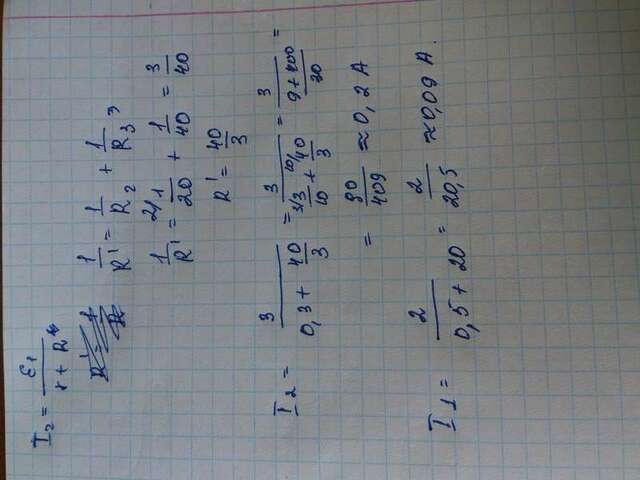 I₂ = ε1 / (r + R')
1/R' = 1/R₂ + 1/R₃
1/R' = 2/ 1/20 + 1/40 = 3/40
R' = 40/3
I₂ = 3 / (0,3 + 40/3) = 3 / (3/ 3/10 + 10/ 40/3) = 3 / ((9+400)/30) =
= 90/409 ≈ 0,2 A
I₁ = 2 / (0,5 + 20) = 2 / 20,5 ≈ 0,09 A.